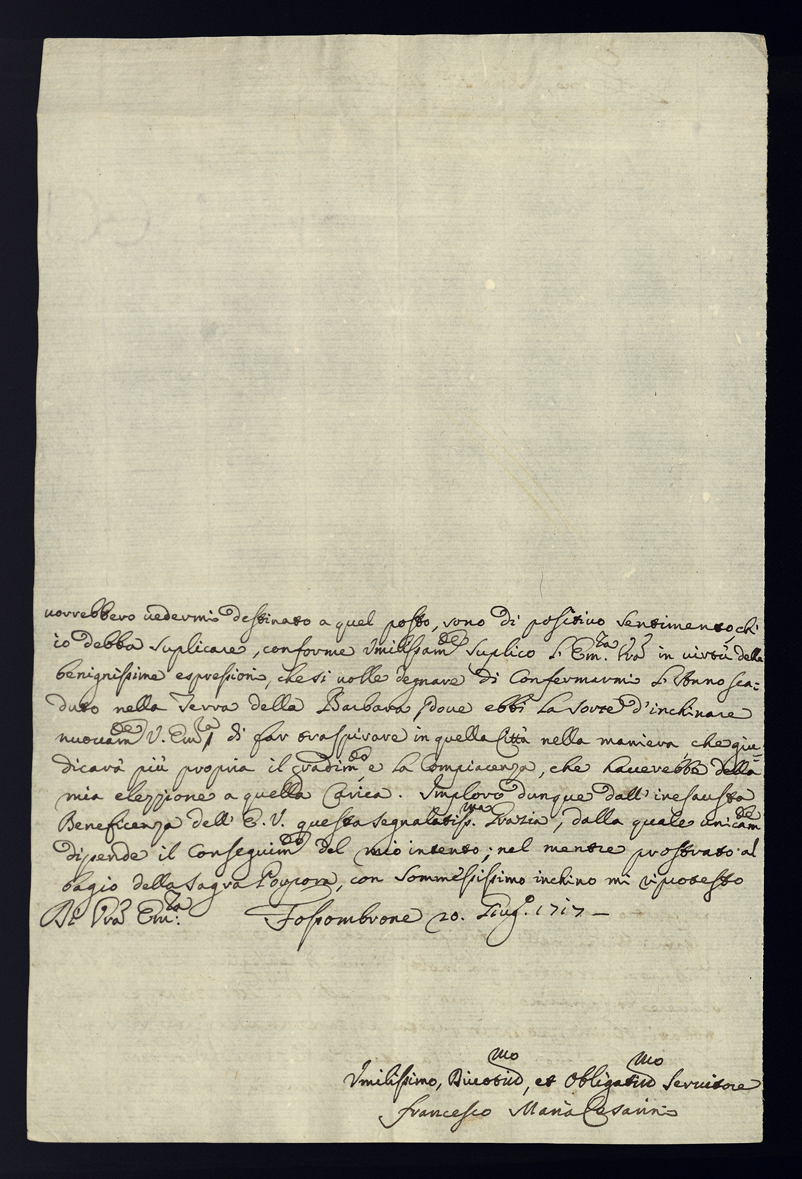 vorrebbero vedermi destinato a quel posto, sono di positivo sentimento ch'
io debba suplicare, conforme Umilissam.te suplico l'Em.za Vra in virtù della
benignissime espressioni, che si volle degnare di Confermarmi l'Anno sca=
duto nella Terra della Barbara, dove ebbi la sorte d'inchinare
nuovam.te V. Em.za, di far traspirare in quella Città nella maniera che giu=
dicarà più propria il gradim.to e la Compiacenza, che haverebbe della
mia elezzione a quella Carica. Imploro dunque dall'inesausta
Beneficenza dell' E. V. questa segnalatiss.ma Grazia, dalla quale unicam.te
dipende il conseguim.to del mio intento; nel mentre prostrato al
bagio della Sagra Porpora, con sommissimo inchino mi riprotesto
Di Vra Em.za Fossombrone 20. Giug.o 1717 –
Umilissimo, Divotis.mo, et Obligatis.mo Servitore
Francesco Maria Cesarini